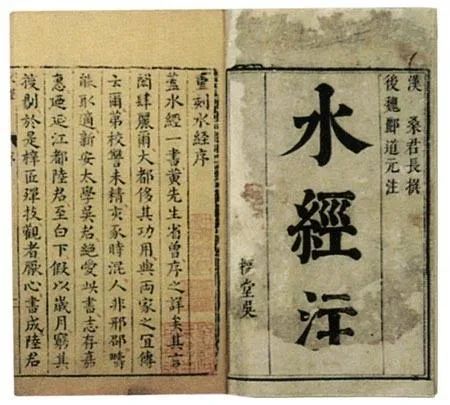 漢 桑君長撰
後魏酈道元注
水經注
堂吳
重刻水經序
蓋水經一書黃先生省曾序之詳矣其言
閎肆麗爾大都侈其功用與兩家之宜傳
云爾第校讐未精亥豕時混人非邢邵疇
能取適新安太學吳君絕愛此書志存嘉
惠迺延江都陸君至白下假以歲月窮其
於是梓匠殫技觀者厭心書成陸君